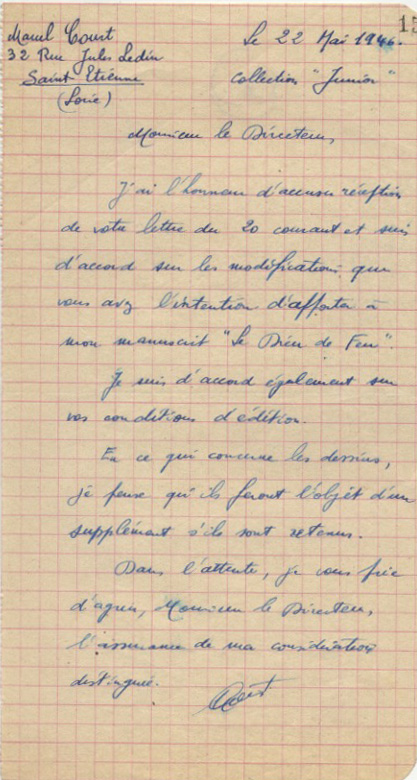 Marcel Court
32 Rue Jules Ledin
Saint Etienne
(Loire)
Le 22 Mai 1946.
15
Collection "Junior"
Monsieur le Directeur,
J'ai l'honneur d'accuser réception
de votre lettre du 20 courant et suis
d'accord sur les modifications que
vous avez l'intention d'apporter à
mon manuscrit "Le Dieu de Feu".
Je suis d'accord également sur
vos conditions d'édition.
En ce qui concerne les dessins,
je pense qu'ils feront l'objet d'un
supplément s'ils sont retenus.
Dans l'attente, je vous prie
d'agréer, Monsieur le Directeur,
l'assurance de ma considération
distinguée.
Court